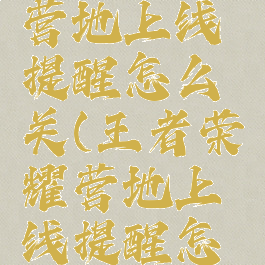 营地上线
提醒怎么
关(王者荣
耀营地上
线提醒怎